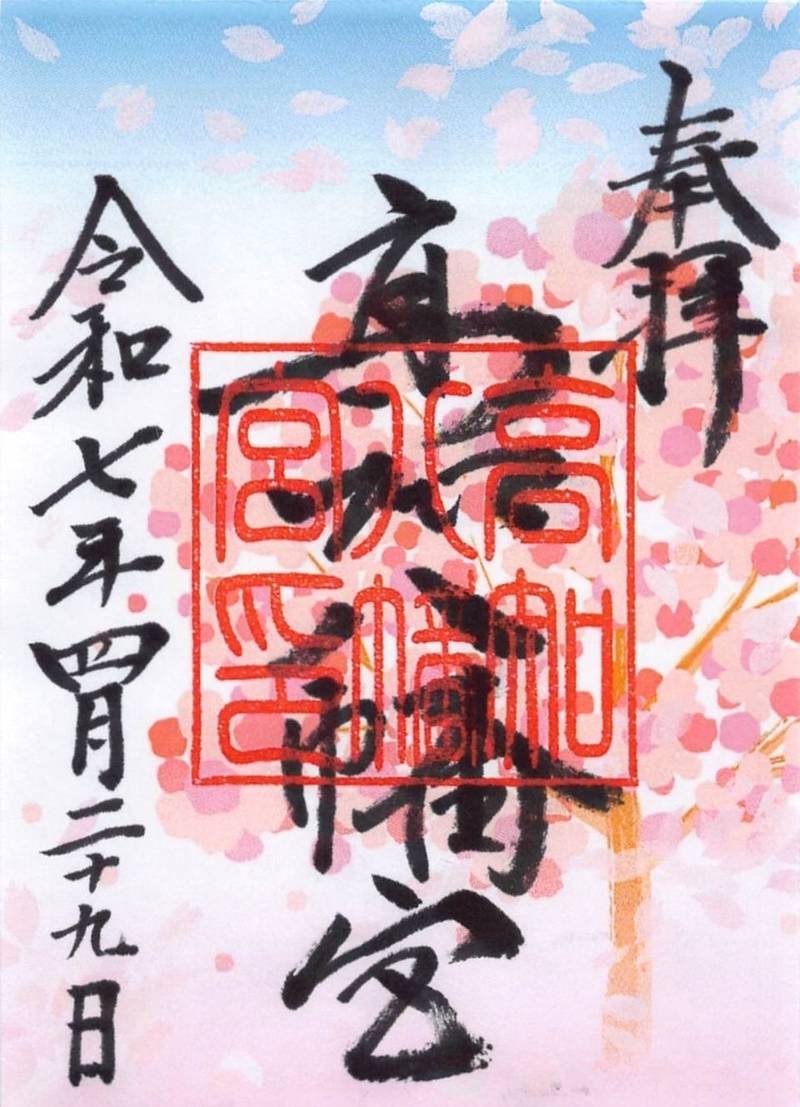 奉拝
高知八幡宮
令和七年四月二十九日
高知
八幡
宮印